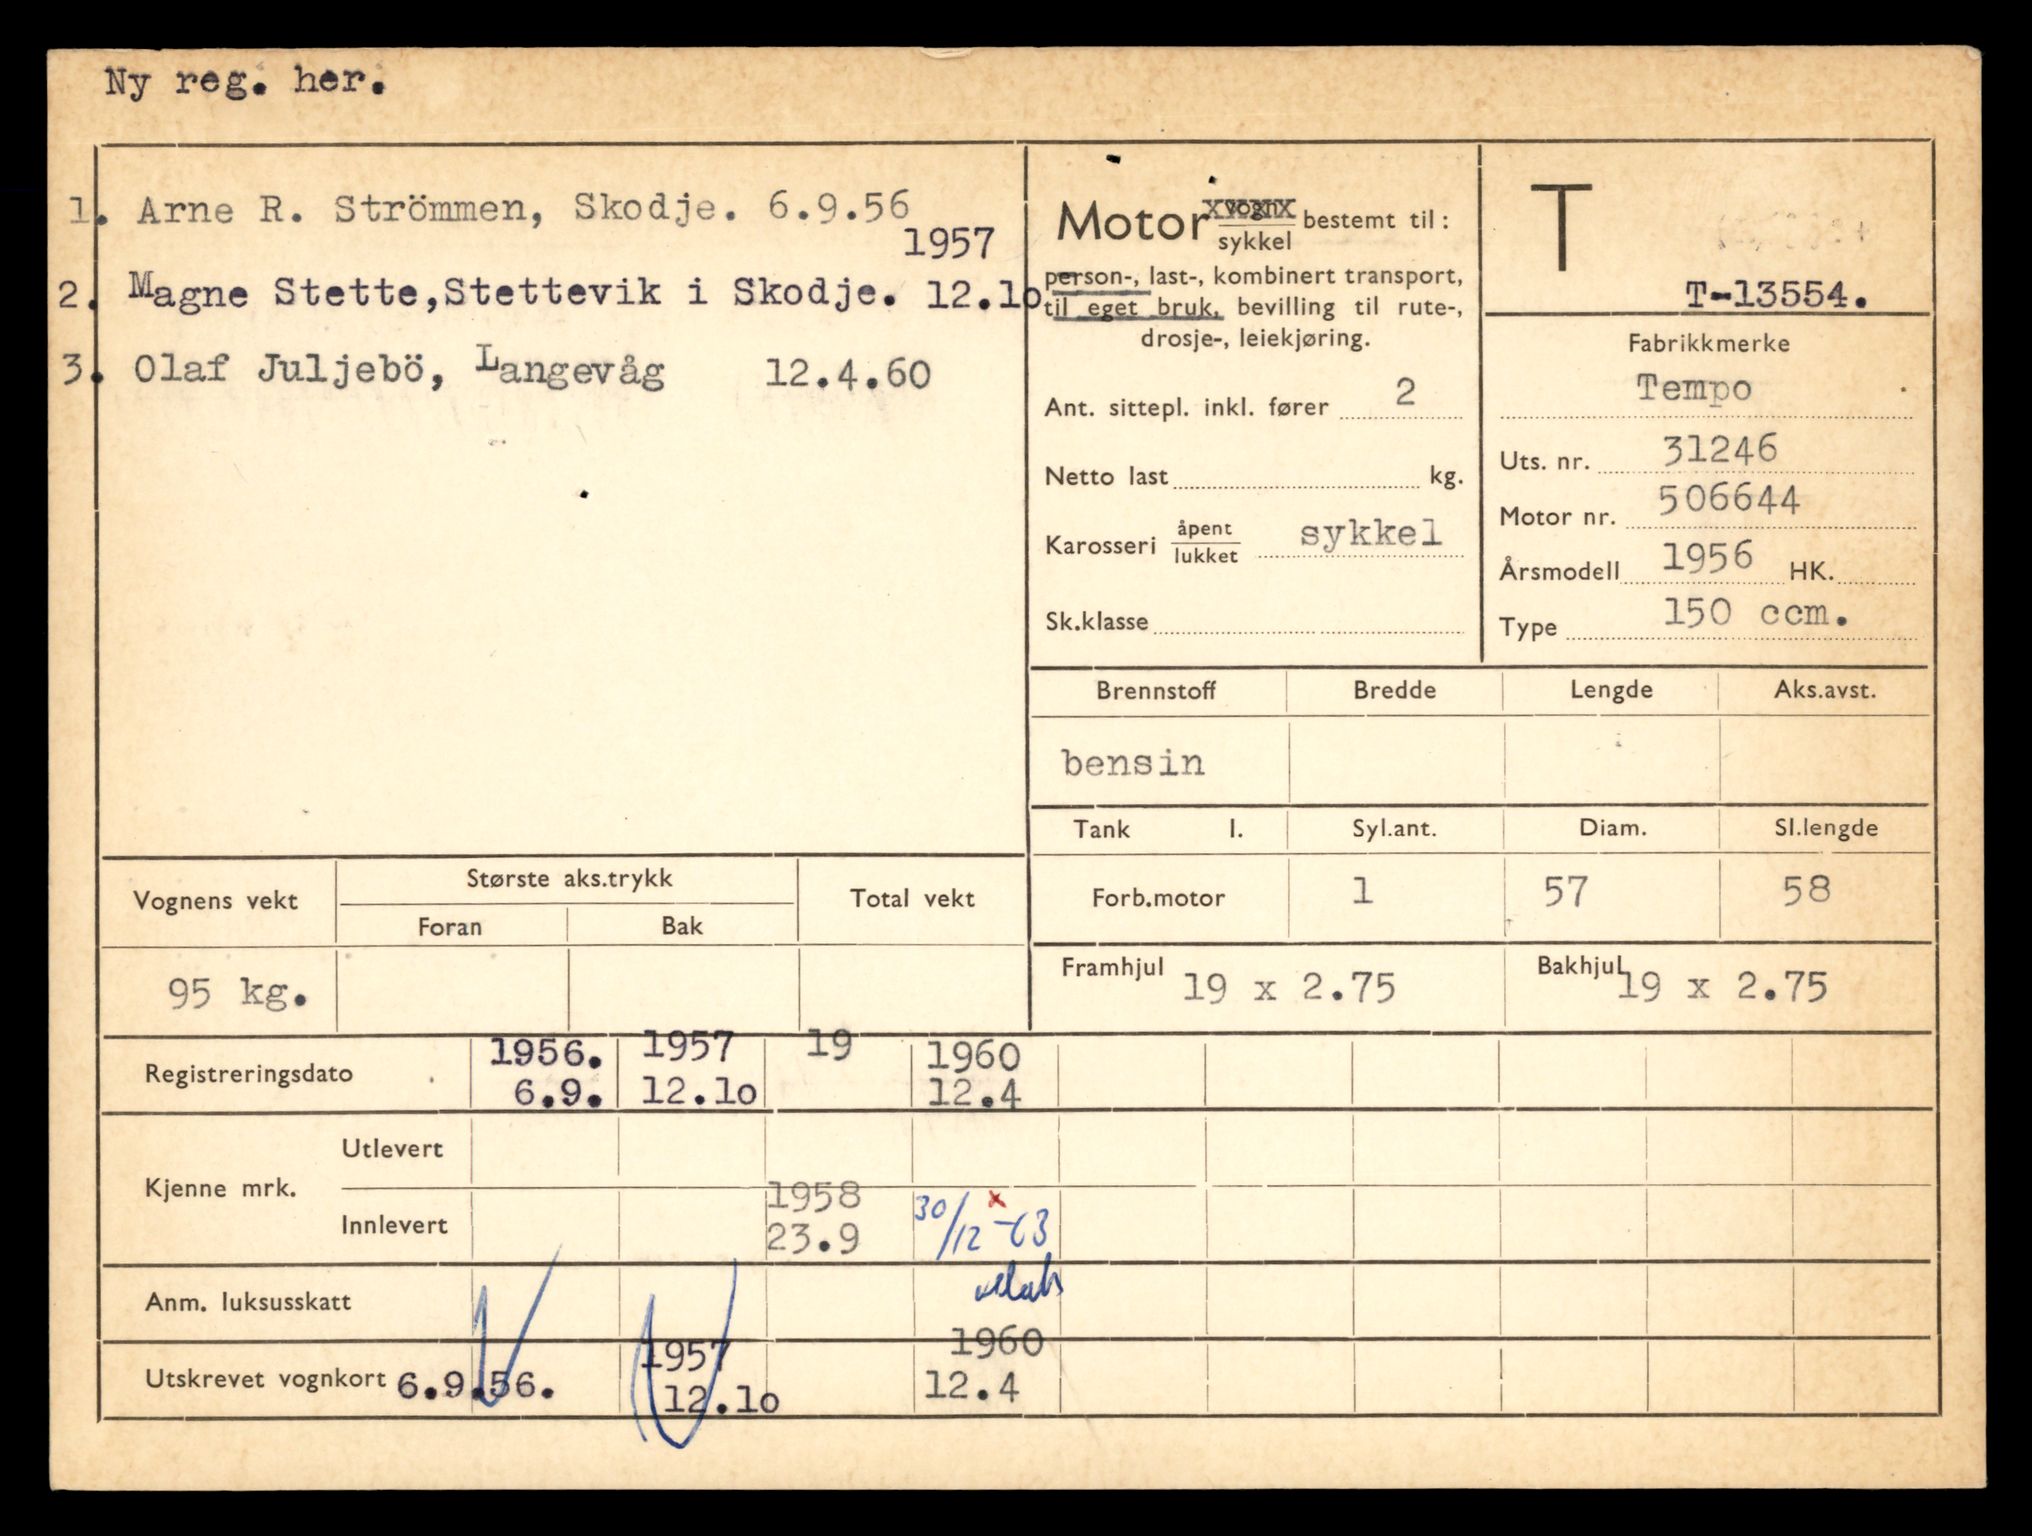 Ny reg. her.
1. Arne R. Strömmen, Skodje. 6.9.56
1957
2. Magne Stette,Stettevik i Skodje. 12.1o
3. Olaf Juljebö, Langevåg 12.4.60
Motor vogn sykkel bestemt til:
person-, last-, kombinert transport,
til eget bruk, bevilling til rute-,
drosje-, leiekjøring.
Ant. sittepl. inkl. fører 2
Netto last kg.
Karosseri åpent lukket sykkel
Sk.klasse
T
T-13554.
Fabrikkmerke
Tempo
Uts. nr. 31246
Motor nr. 506644
Årsmodell 1956 HK.
Type 150 ccm.
Brennstoff Bredde Lengde Aks.avst.
bensin
Tank l. Syl.ant. Diam. Sl.lengde
Forb.motor 1 57 58
Framhjul 19 x 2.75 Bakhjul 19 x 2.75
Vognens vekt Største aks.trykk Total vekt
Foran Bak
95 kg.
1956. 1957 19 1960
Registreringsdato
6.9. 12.1o 12.4
Utlevert
Kjenne mrk.
1958 30/12 -63 x
Innlevert
23.9
Anm. luksusskatt
1957 1960
Utskrevet vognkort 6.9.56. 12.1o 12.4